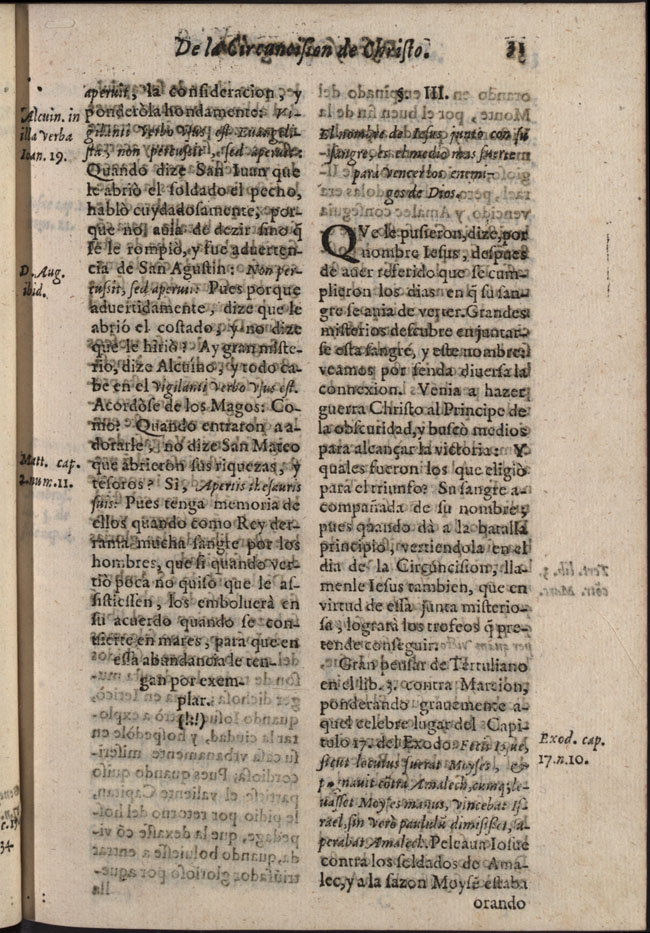 De la Circuncision de Christo. 31
aperuit, la consideracion, y
ponderòla hondamente: Vi-
gilanti verbo vsus est Euangeli-
sta, non percussit, sed aperuit:
Quando dize San Iuan que
le abriò el soldado el pecho,
hablò cuydadosamente; por-
que no auia de dezir sino q̃
se le rompiò, y fue aduerten-
cia de San Agustin: Non per-
cussit, sed aperuit. Pues porque
aduertidamente, dize que le
abriò el costado, y no dize
que le hiriò? Ay gran miste-
rio, dize Alcuino, y todo ca-
be en el vigilanti verbo vsus est.
Acordòse de los Magos: Co-
mo? Quando entraron a a-
dorarle, no dize San Mateo
que abrieron sus riquezas, y
tesoros? Si, Apertis thesauris
suis. Pues tenga memoria de
ellos quando como Rey der-
rama mucha sangre por los
hombres, que si quando ver-
tiò poca no quiso que le as-
sistiessen, los emboluerà en
su acuerdo quando se con-
uierte en mares, para que en
essa abundancia le ten-
gan por exem-
plar.
(!:!)
Alcuin. in
illa verba
Ioan. 19.
D. Aug.
ibid.
Matt. cap.
2. num. 11.
§. III.
El nombre de Iesus junto con su
sangre, es el medio mas fuerte
para vencer los enemi-
gos de Dios.
QVe le pusieron, dize, por
nombre Iesus, despues
de auer referido que se cum-
plieron los dias en q̃ su san-
gre se auia de verter. Grandes
misterios descubre en juntar-
se esta sangre, y este nombre:
veamos por senda diuersa la
connexion. Venia a hazer
guerra Christo al Principe de
la obscuridad, y buscò medios
para alcançar la victoria: Y
quales fueron los que eligiò
para el triunfo? Su sangre a-
compañada de su nombre,
pues quando dà a la batalla
principio, vertiendola en el
dia de la Circuncision, lla-
menle Iesus tambien, que en
virtud de essa junta misterio-
sa, lograrà los trofeos q̃ pre-
tende conseguir.
Gran pensar de Tertuliano
en el lib. 3. contra Marcion,
ponderando grauemente a-
quel celebre lugar del Capi-
tulo 17. del Exodo: Fecit Iosue,
sicut locutus fuerat Moyses, &
pugnauit côtra Amalech, cumq; le-
uasset Moyses manus, vincebat Is-
rael, sin verò paululũ dimisisset, su-
perabat Amalech. Peleaua Iosue
contra los soldados de Ama-
lec, y a la sazon Moysẽ estaba
orando
Exod. cap.
17. n. 10.